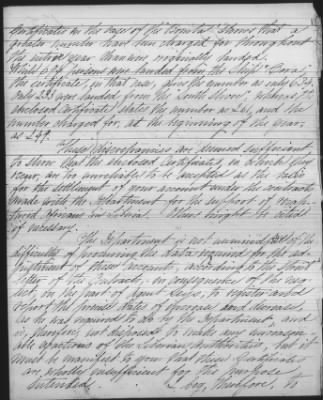 Certificates in the case of the "Bonita" shows that a
greater number was charged for throughout
the entire year than was originally landed.
were landed from the Ship "Cora"
the certificate, in that case, gives the number as only
were landed from the "South Shore" whereas the
enclosed Certificate states the number as and the
number charged for, at the beginning of the year
as 249.
These discrepancies are deemed sufficient
to show that the enclosed Certificates, in which they
occur, are too unreliable to be accepted as the basis
for the settlement of your account under the contract
made with the Department for the support of recap-
tured Africans in Liberia. Others might be cited
if necessary.
The Department is not unmindful of the
difficulty of procuring the data required for the ad-
justment of these accounts, according to the strict
letter of the Contracts, in consequence of the neg-
lect, on the part of your Agts, to register and
report the precise dates of
as he was required to do by the Department, and
is, therefore, not disposed to make any unreason-
able exactions of the Liberian Authorities, but it
must be manifest to you that these Certificates
are wholly insufficient for the purpose
intended. I beg, therefore, to